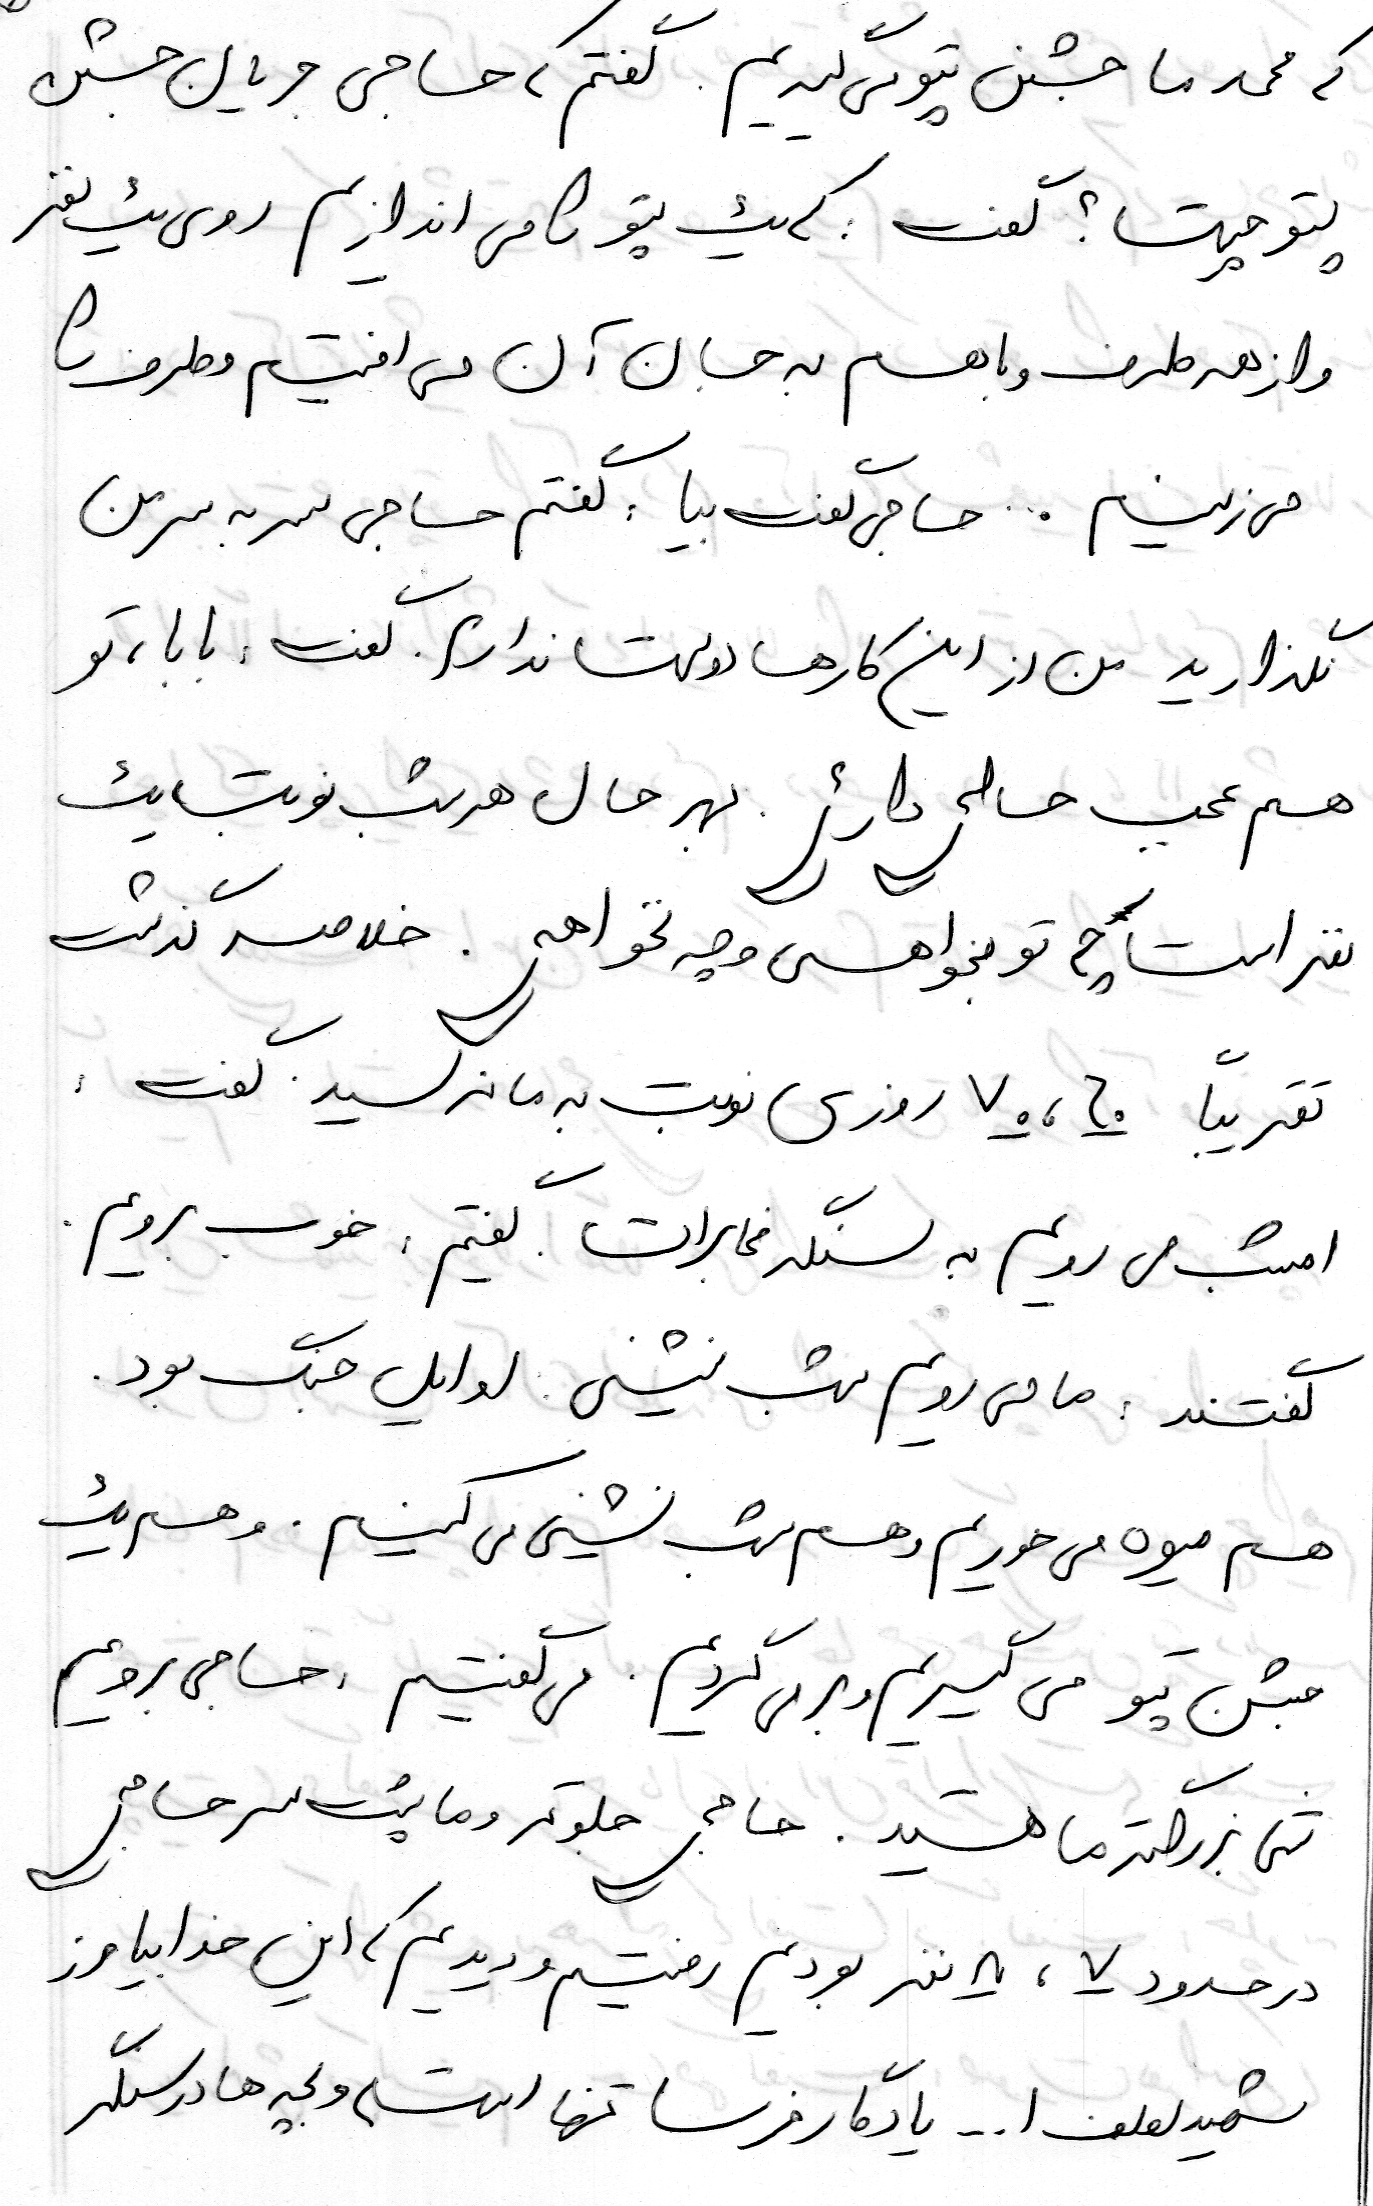 که محمد ما جشن پتو می گیریم. گفتم که حاجی جریان جشن
پتو چیست؟ گفت: که یک پتو را می اندازیم روی یک نفر
و از همه طرف و با هم به جان آن می افتیم و طرف را
می زنیم ... حاجی گفت بیا، گفتم حاجی سر به سر من
نگذارید من از این کارها دوست ندارم. گفت، بابا، تو
هم عجب حالی داری. بهر حال هر شب نوبت یک
نفر است چه تو بخواهی و چه نخواهی. خلاصه گذشت
تقریباً ۶۰، ۷۰ روزی نوبت به ما نرسید. گفت:
امشب می رویم به سنگر مخابرات. گفتیم، خوب برویم.
گفتند: ما می رویم شب نشینی. اوایل جنگ بود.
هم میوه می خوریم و هم شب نشینی می کنیم. و هم یک
جشن پتو می گیریم و برمی گردیم. می گفتیم، حاجی برویم
شما بزرگتر ما هستید. حاجی جلوتر و ما پشت سر حاجی
در حدود ۷، ۸ نفر بودیم رفتیم و دیدیم که این خدا بیامرز
شهید ا... یادگار فرسا تنها است و بچه ها در سنگر